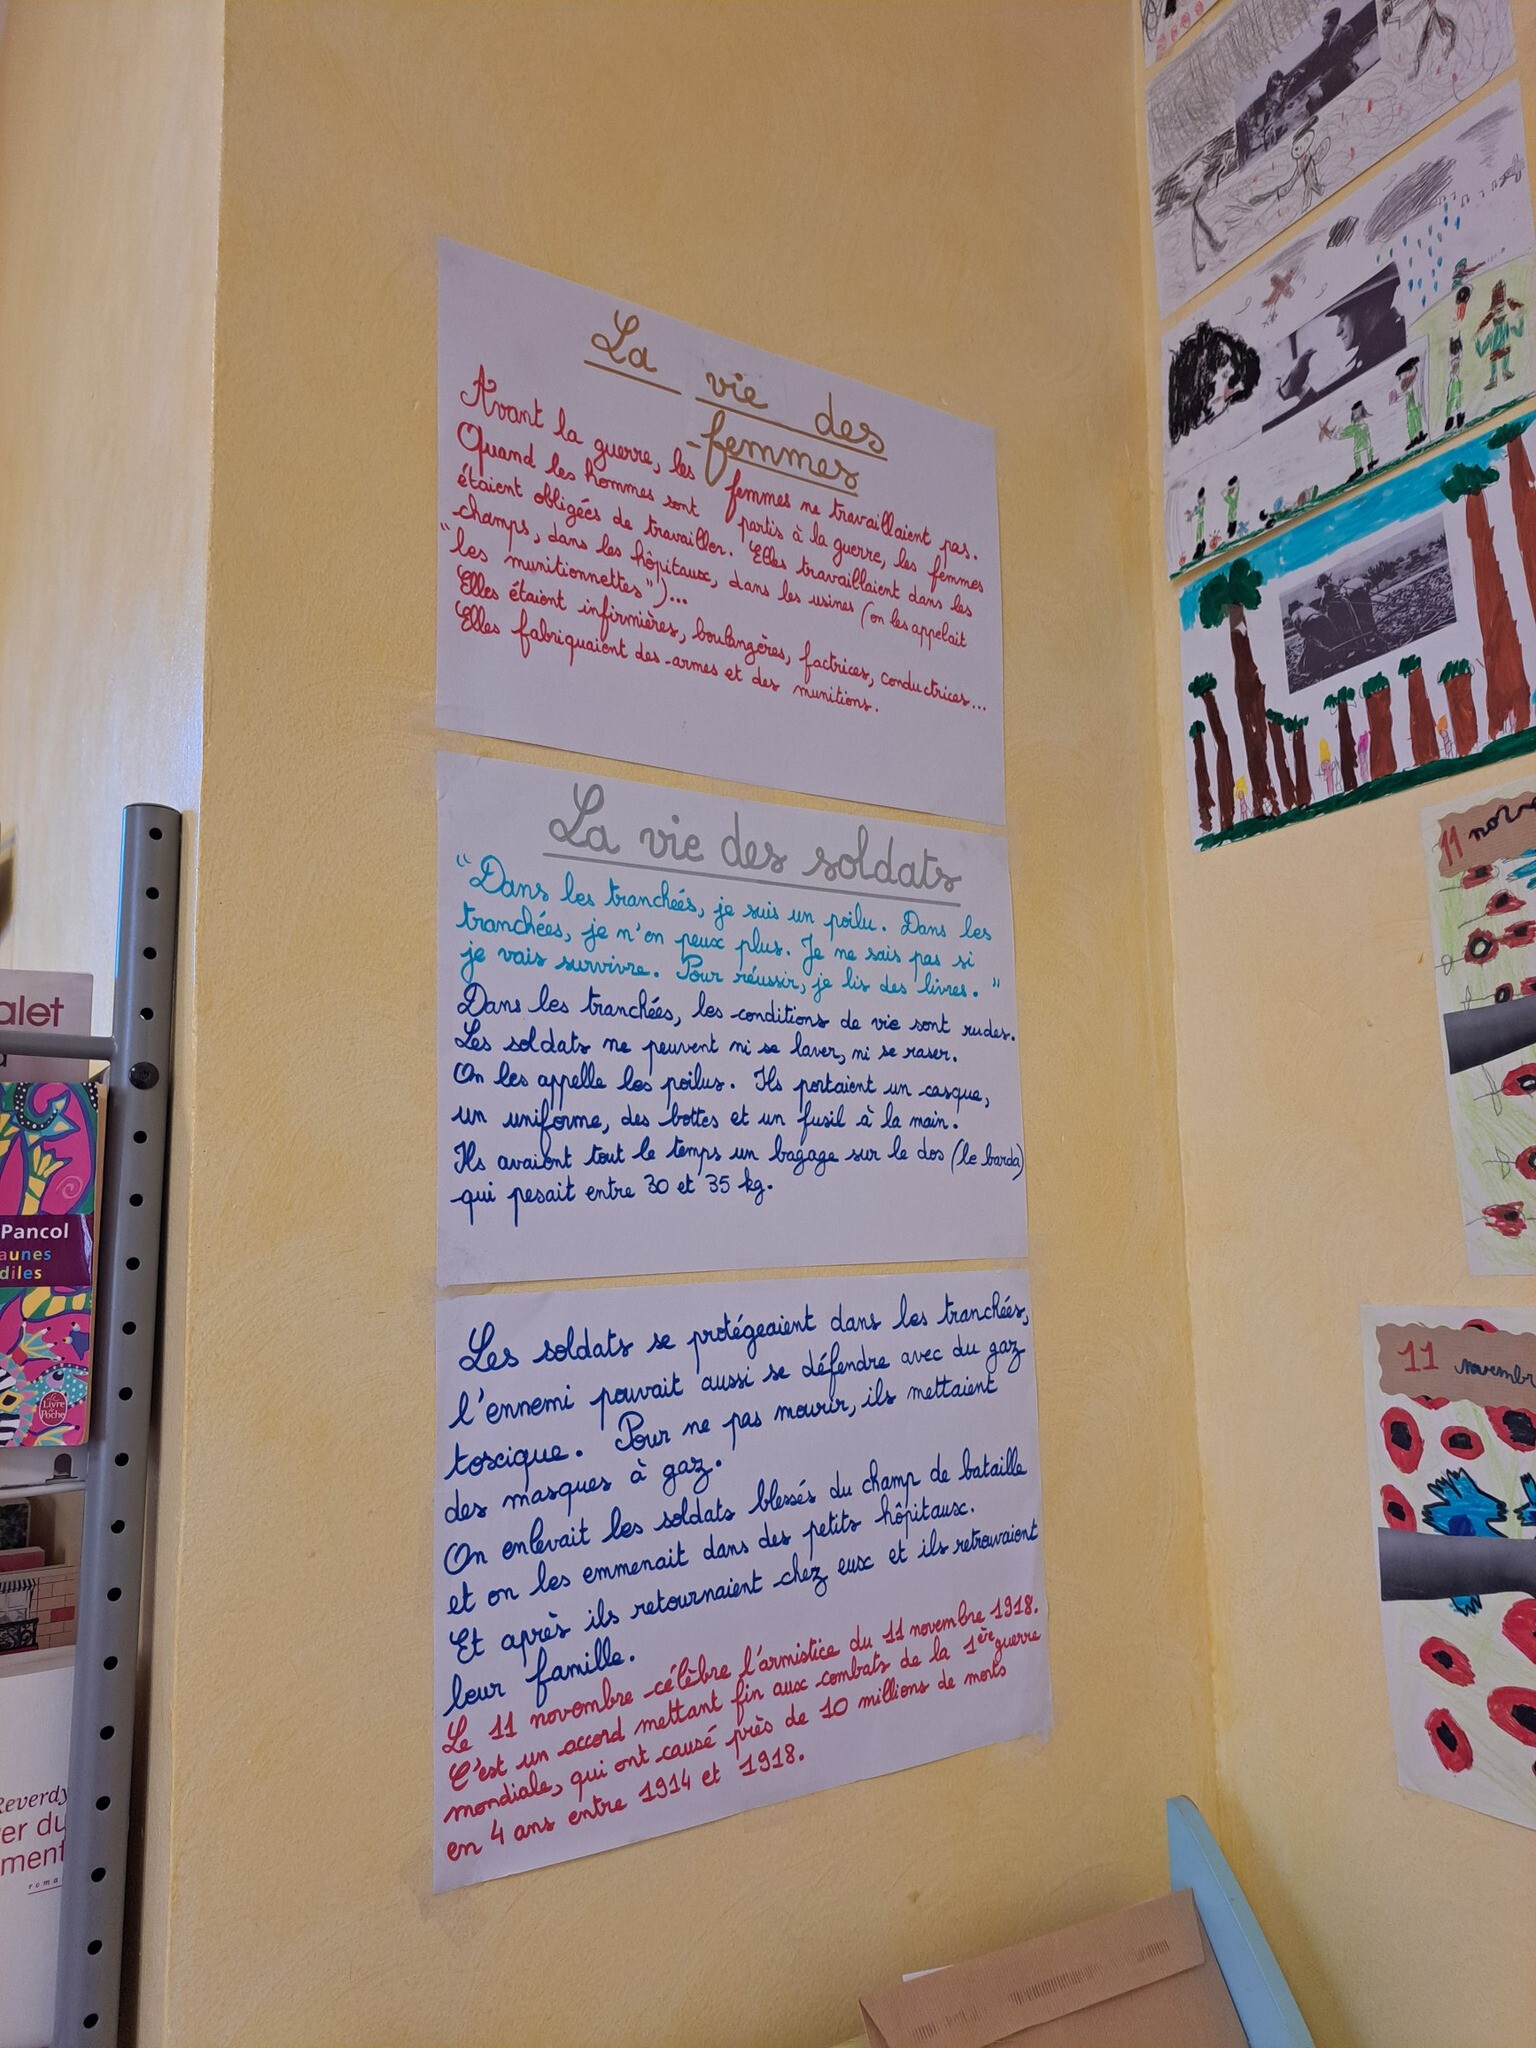 La vie des
femmes
Avant la guerre, les femmes ne travaillaient pas.
Quand les hommes sont partis à la guerre, les femmes
étaient obligées de travailler. Elles travaillaient dans les
champs, dans les hôpitaux, dans les usines (on les appelait
"les munitionnettes")...
Elles étaient infirmières, boulangères, factrices, conductrices...
Elles fabriquaient des armes et des munitions.
La vie des soldats
"Dans les tranchées, je suis un poilu. Dans les
tranchées, je n'en peux plus. Je ne sais pas si
je vais survivre. Pour réussir, je lis des livres."
Dans les tranchées, les conditions de vie sont rudes.
Les soldats ne peuvent ni se laver, ni se raser.
On les appelle les poilus. Ils portaient un casque,
un uniforme, des bottes et un fusil à la main.
Ils avaient tout le temps un bagage sur le dos (le barda)
qui pesait entre 30 et 35 kg.
Les soldats se protégeaient dans les tranchées,
l'ennemi pouvait aussi se défendre avec du gaz
toxique. Pour ne pas mourir, ils mettaient
des masques à gaz.
On enlevait les soldats blessés du champ de bataille
et on les emmenait dans des petits hôpitaux.
Et après ils retournaient chez eux et ils retrouvaient
leur famille.
Le 11 novembre célèbre l'armistice du 11 novembre 1918.
C'est un accord mettant fin aux combats de la 1ère guerre
mondiale, qui ont causé près de 10 millions de morts
en 4 ans entre 1914 et 1918.
alet
Pancol
aunes
diles
Le Livre de Poche
Reverdy
er du
ment
roma
11 nov
11 novembr